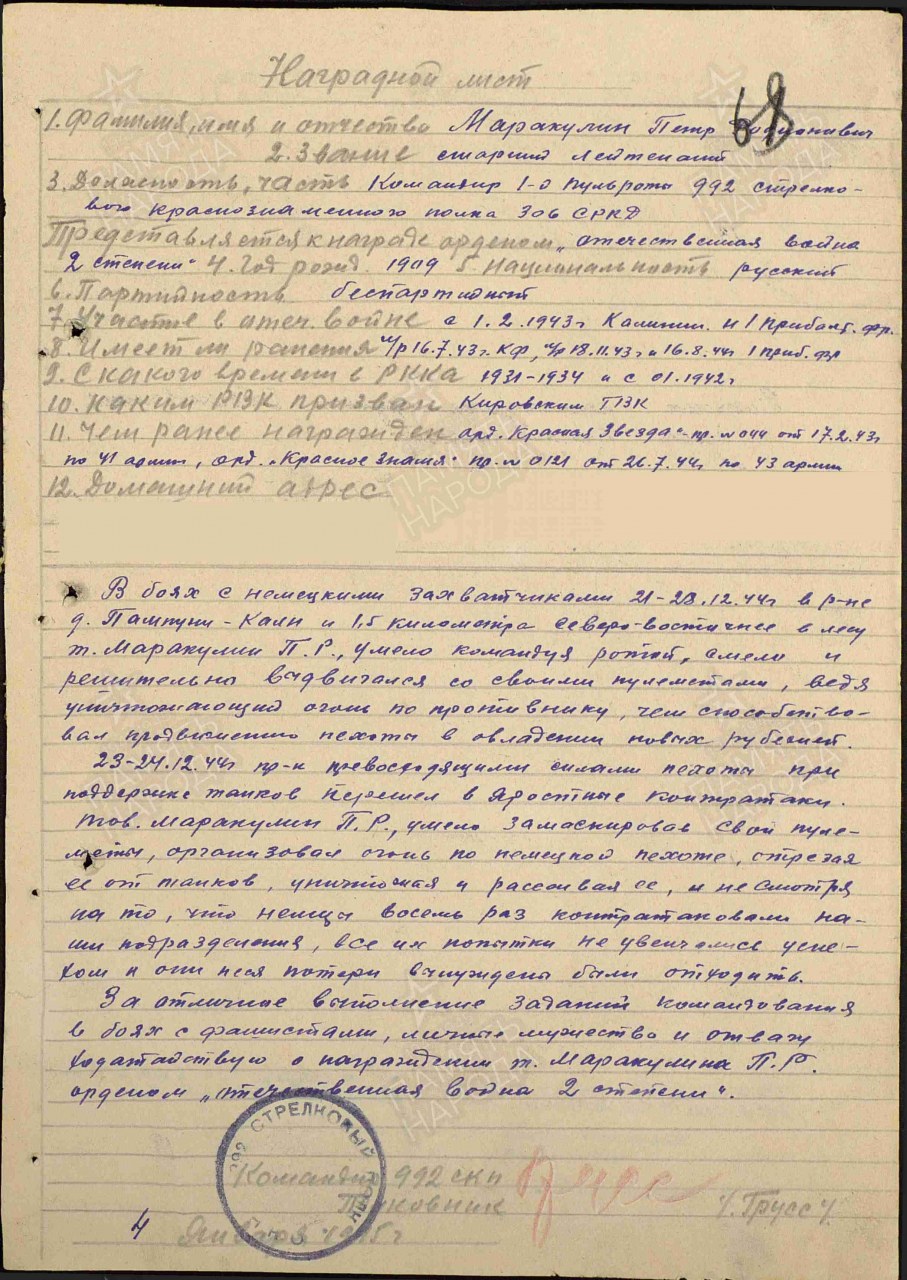 Наградной лист
1. Фамилия, имя и отчество Маракулин Петр
2. Звание старший лейтенант
3. Должность, часть Командир 1-й пульроты 992 стрелко-
вого краснознаменного полка 306 СРКД
Представляется к награде орденом „отечественная война
2 степени" 4. Год рожд. 1909 5 Национальность русский
6. Партийность беспартийный
7. Участие в отеч. войне с 1.2.1943г Калинин. и 1 Прибалт. фр.
8. Имеет ли ранения л/р 16.7.43г. КФ, л/р 18.11.43г и 16.8.44г 1 приб. фр
9. С какого времени в РККА 1931-1934 и с 01.1942г
10. Каким РВК призван Кировским ГВК
11. Чем ранее награжден орд. „Красная Звезда"- пр. №044 от 17.2.43г
по 41 армии, орд. „Красное знамя" пр. №0121 от 26.7.44г по 43 армии
12. Домашний адрес
В боях с немецкими захватчиками 21-28.12.44г в р-не
д. Пампуни-Калн и 1,5 километра северо-восточнее в лесу
т. Маракулин П.Р., умело командуя ротой, смело и
решительно выдвигался со своими пулеметами, ведя
уничтожающий огонь по противнику, чем способство-
вал продвижению пехоты в овладении новых рубежей.
23-24.12.44г пр-к превосходящими силами пехоты при
поддержке танков перешел в яростные контратаки.
тов. Маракулин П.Р., умело замаскировав свои пуле-
меты, организовал огонь по немецкой пехоте, отрезая
ее от танков, уничтожая и рассеивая ее, и не смотря
на то, что немцы восемь раз контратаковали на-
ши подразделения, все их попытки не увенчались успе-
хом и они неся потери вынуждены были отходить.
За отличное выполнение заданий командования
в боях с фашистами, личное мужество и отвагу
ходатайствую о награждении т. Маракулина П.Р.
орденом „отечественная война 2 степени".
992 СТРЕЛКОВЫЙ ПОЛК
Командир 992 скп
Полковник /. Трусс /.
4 Января 1945г
ПАМЯТЬ НАРОДА